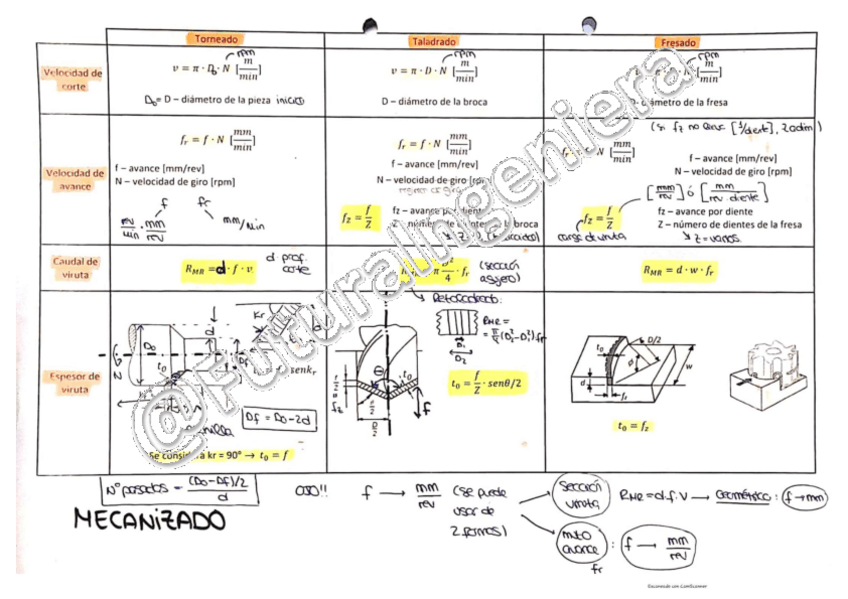 Torneado
Taladrado
Fresado
Velocidad de corte
mm
v = π · D₀ · N [m/min]
D₀ = D – diámetro de la pieza inicio
rpm
v = π · D · N [m/min]
D – diámetro de la broca
rpm
N [m/min]
D – diámetro de la fresa
Velocidad de avance
fr = f · N [mm/min]
f – avance [mm/rev]
N – velocidad de giro [rpm]
f
fr
rev/min · mm/rev
mm/min
fr = f · N [mm/min]
f – avance [mm/rev]
N – velocidad de giro [rpm]
fz = f/Z
fz – avance por diente
Z – número de dientes de la broca
(si fz no lleva [1/diente], Z adim)
N [mm/min]
f – avance [mm/rev]
N – velocidad de giro [rpm]
[mm/rev] ó [mm/rev·diente]
fz = f/Z
fz – avance por diente
Z – número de dientes de la fresa
carga de viruta
Z = varios
Caudal de viruta
R_MR = d · f · v
d: prof. corte
π D²/4 · fr
(sección agujero)
R_MR = d · w · fr
Espesor de viruta
D₀
d
Kr
t₀
Df
N
senkr
Df = D₀ - 2d
Se considera kr = 90° → t₀ = f
Retaladrado:
R_MR = π/4 (D₂² - D₁²) fr
D₁
D₂
θ
t₀
fz
f
D/2
t₀ = f/Z · senθ/2
t₀
D/2
d
w
t₀ = fz
Nº pasadas = (D₀ - Df)/2 / d
OJO!!
f → mm/rev (se puede usar de 2 formas)
sección viruta
R_MR = d·f·v → Geométrico: f → mm
mvto avance fr : f → mm/rev
MECANIZADO
@FuturaIngeniera
Escaneado con CamScanner